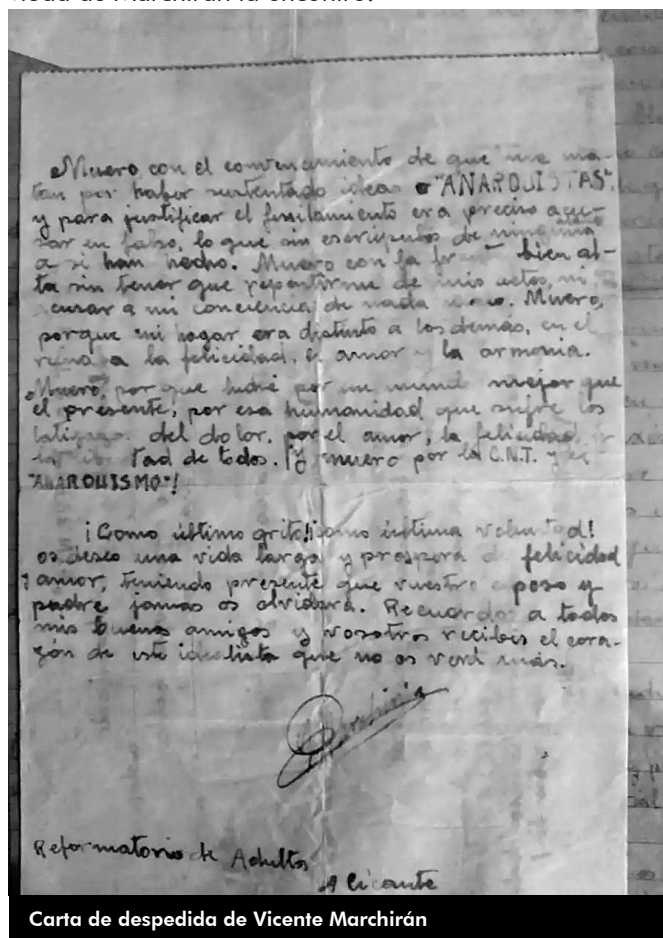 viuda de Marchirán la encontró.
Muero con el convencimiento de que me ma-
tan por haber sustentado ideas "ANARQUISTAS",
y para justificar el fusilamiento era preciso acu-
sar en falso, lo que sin escrúpulos de ninguna
a si han hecho. Muero con la bien al-
ta sin tener que repentirme de mis actos, ni
acusar a mi conciencia de nada. Muero,
porque mi hogar era distinto a los demás, en el
reinaba la felicidad, el amor y la armonia.
Muero, por que luché por un mundo mejor que
el presente, por esa humanidad que sufre los
latigazos del dolor, por el amor, la felicidad y
la libertad de todos. ¡Y muero por la C.N.T. y el
"ANARQUISMO"!
¡Como último grito! ¡como última voluntad!
os deseo una vida larga y prospera de felicidad
y amor, teniendo presente que vuestro esposo y
padre jamas os olvidará. Recuerdos a todos
mis buenos amigos y vosotros recibis el cora-
zón de este idealista que no os verá más.
Reformatorio de Adultos
Alicante
Carta de despedida de Vicente Marchirán